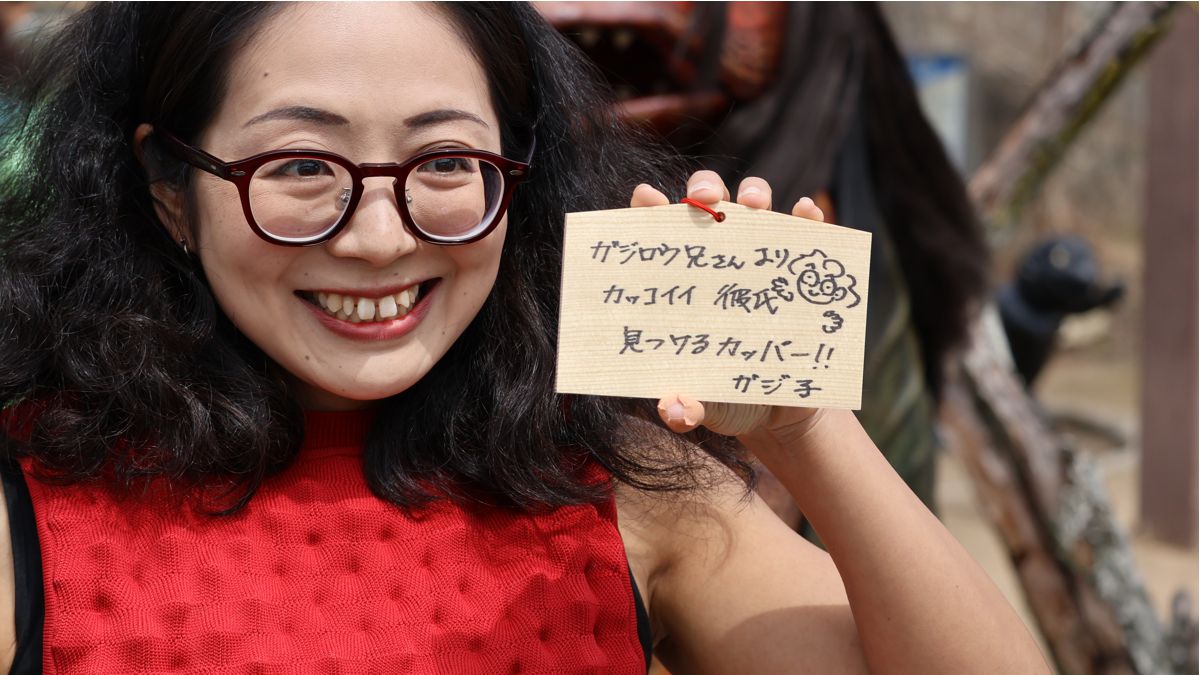 ガジロウ兄さんより
カッコイイ 彼氏
見つケるカッパー!!
ガジ子